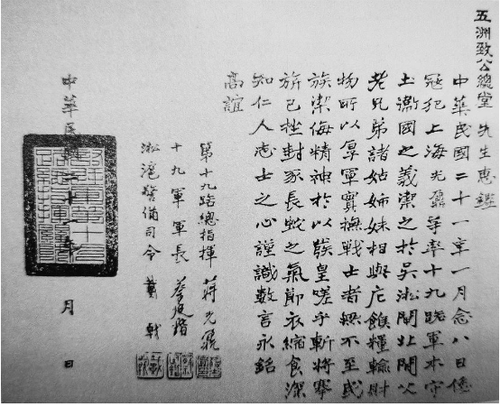 五洲致公總堂 先生惠鑑
中華民國二十一年一月念八日倭
寇犯上海光鼐等率十九路軍本守
土衛國之義禦之於吳淞閘北間父
老兄弟諸姑姊妹相與 餱糧輸財
物所以厚軍實撫戰士者 不至民
族禦侮精神於以發皇嗟乎斬將搴
旂已挫封豕長蛇之氣節衣縮食深
知仁人志士之心謹識數言永銘
高誼
第十九路總指揮 蔣光鼐
十九軍軍長 蔡廷鍇
淞滬警備司令 戴戟
中華民國二十一年 月 日